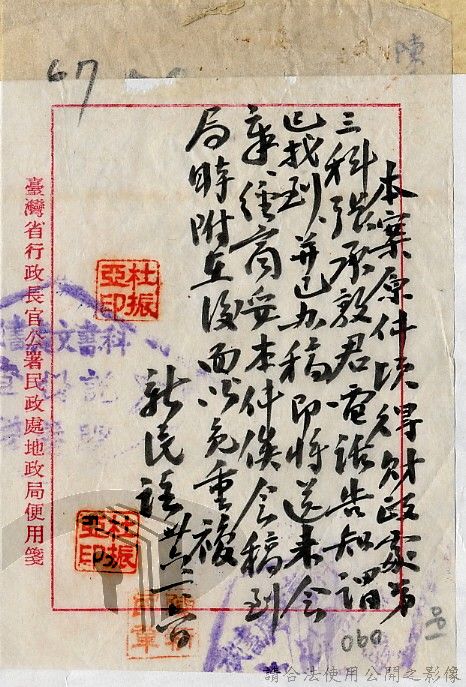 陳
67
本案原件頃得財政處第
三科張承敦君電話告知謂
已找到並已办稿即將送來会
章經商妥本件俟会稿到
局時附在後面以免重複
杜振
亞印
杜振
亞印
臺灣省行政長官公署民政處地政局便用箋
060
請合法使用公開之影像